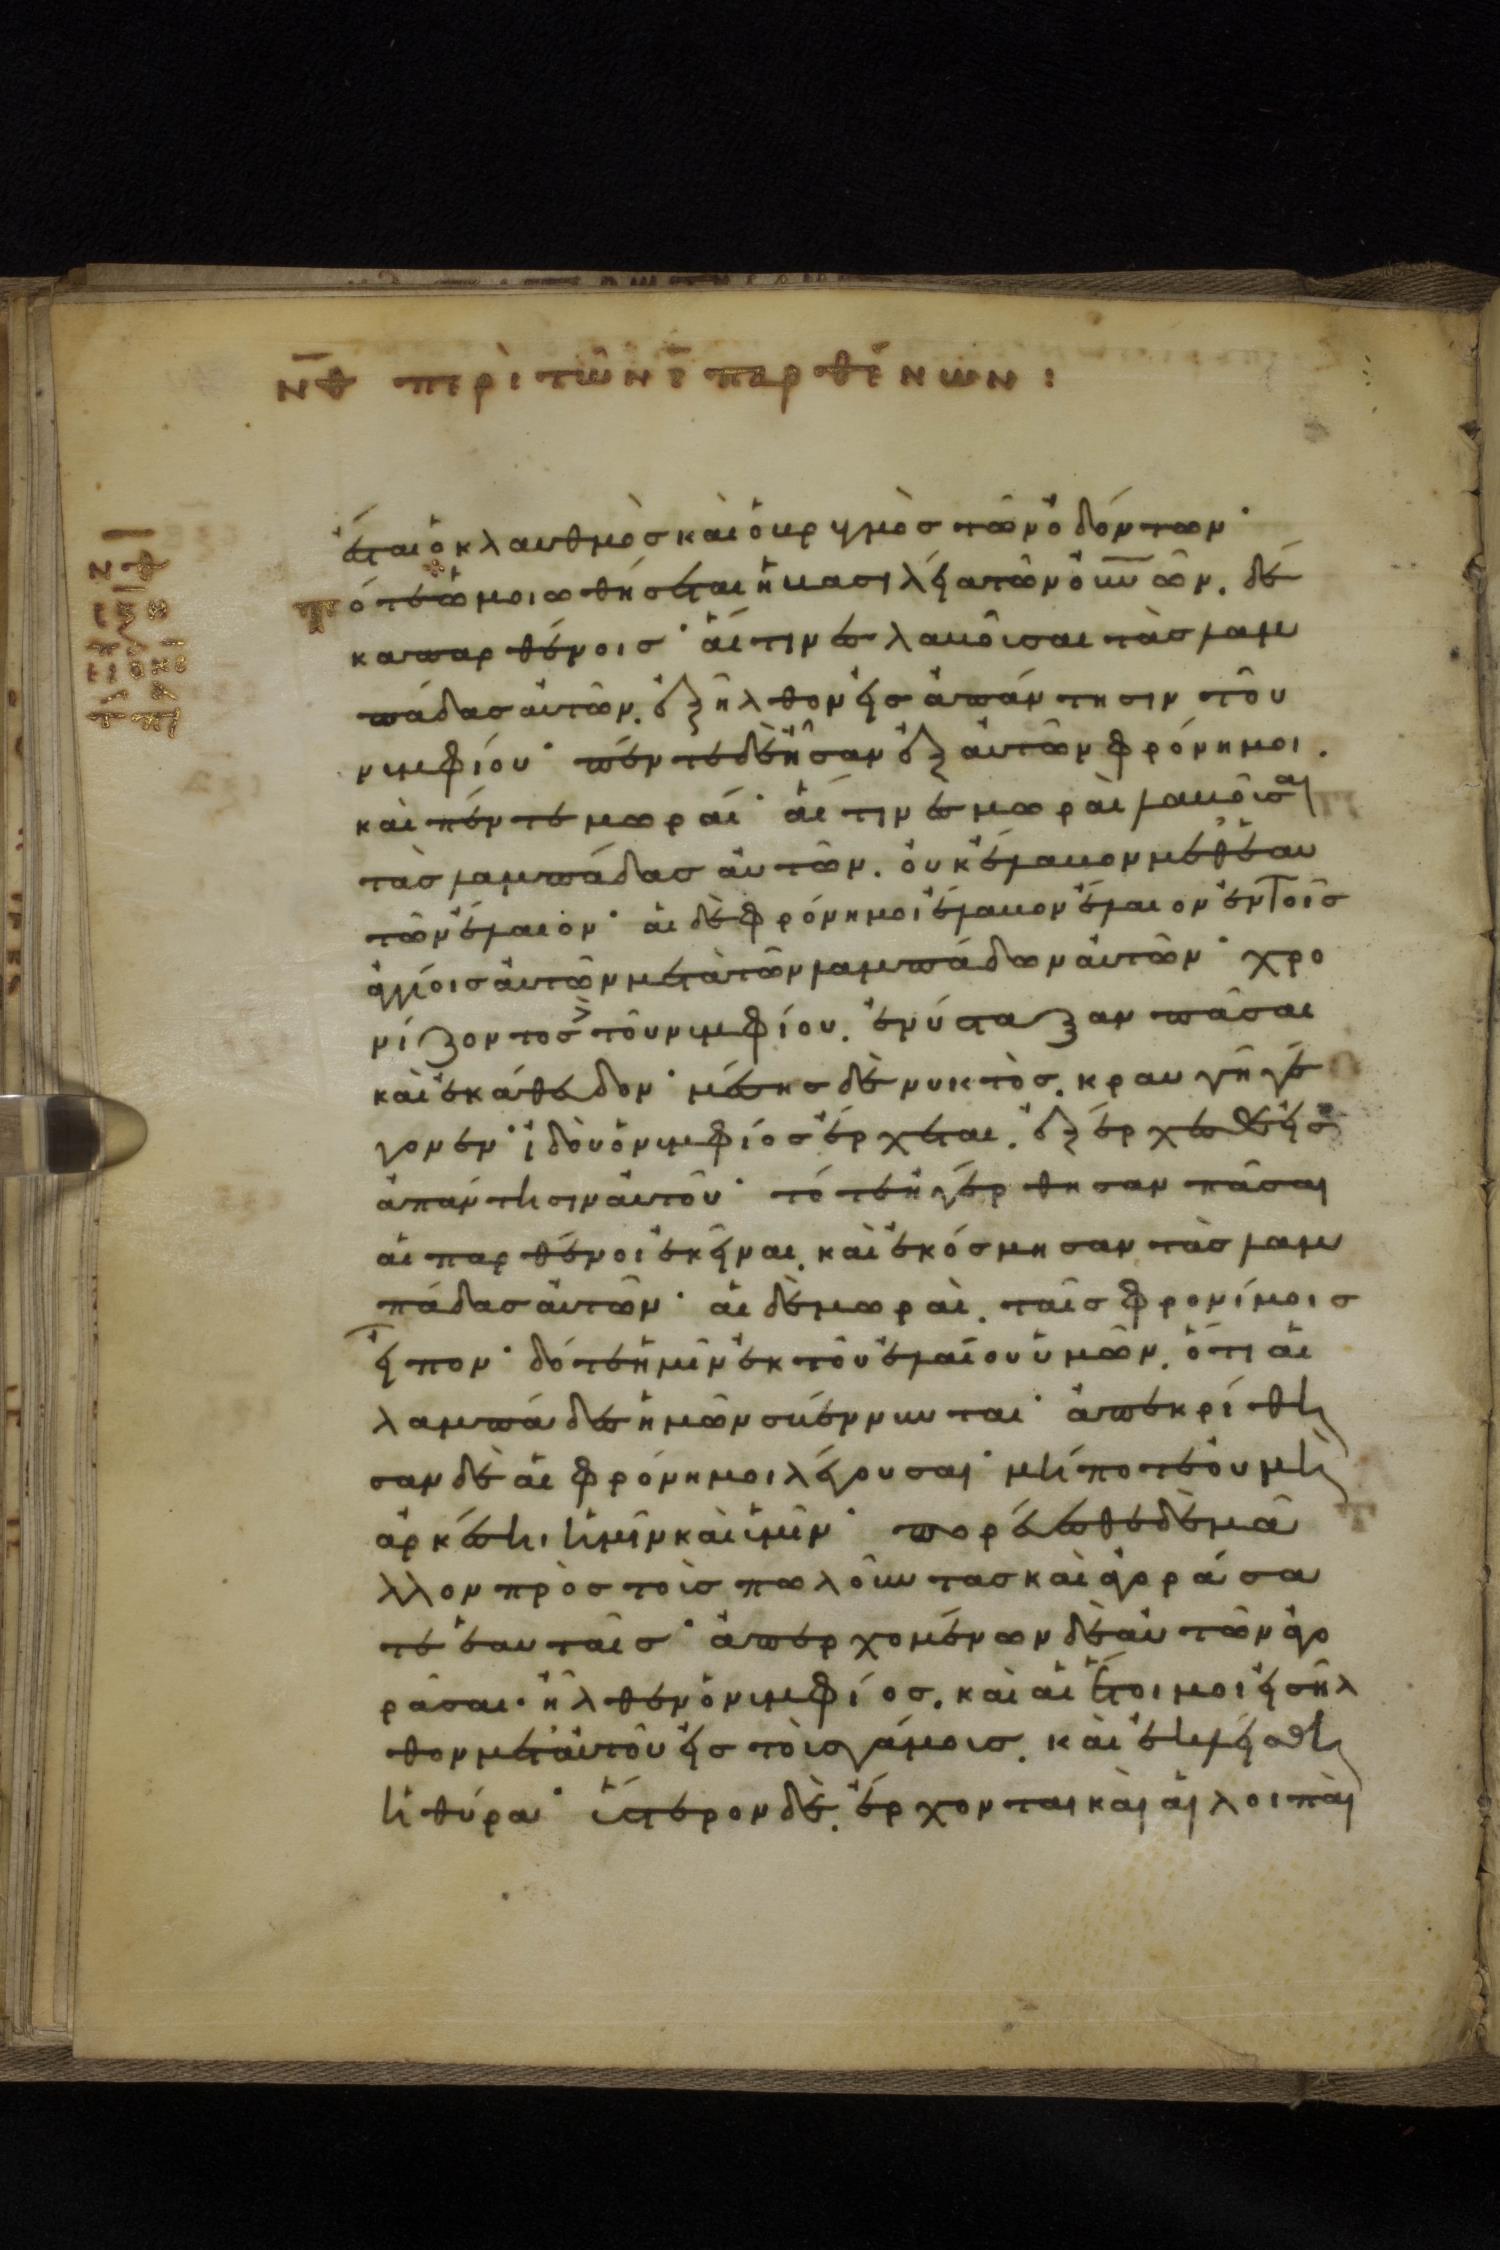 ν̅θ̅ περὶ τῶν ι̅ παρθένων :
ἔσται ὁ κλαυθμὸς καὶ ὁ βρυγμὸς τῶν ὀδόντων·
Τότε ὡμοιωθήσεται ἡ βασιλεία τῶν ο̅υ̅ν̅ῶν. δέ
κα παρθένοις· αἵτινες λαβοῦσαι τὰς λαμ
πάδας αὐτῶν. ἐξῆλθον εἰς ἀπάντησιν τοῦ
νυμφίου· πέντε δὲ ἦσαν ἐξ αὐτῶν φρόνημοι.
καὶ πέντε μωραί· αἵτινες μωραὶ λαβοῦσαι
τὰς λαμπάδας αὐτῶν. οὐκ ἔλαβον μεθ' ἑαυ
τῶν ἔλαιον· αἱ δὲ φρόνημοι ἔλαβον ἔλαιον ἐν τοῖς
ἀγγίοις αὐτῶν μετὰ τῶν λαμπάδων αὐτῶν· χρο
νίζοντος τοῦ νυμφίου. ἐνύσταξαν πᾶσαι
καὶ ἐκάθευδον· μέσης δὲ νυκτὸς. κραυγὴ γέ
γονεν· ἰδοὺ ὁ νυμφίος ἔρχεται. ἐξέρχεσθε εἰς
ἀπάντησιν αὐτοῦ· τότε ἠγέρθησαν πᾶσαι
αἱ παρθένοι ἐκεῖναι. καὶ ἐκόσμησαν τὰς λαμ
πάδας αὐτῶν· αἱ δὲ μωραὶ. ταῖς φρονίμοις
εἶπον· δότε ἡμῖν ἐκ τοῦ ἐλαίου ὑμῶν. ὅτι αἱ
λαμπάδες ἡμῶν σβέννυνται· ἀπεκρίθη
σαν δὲ αἱ φρόνημοι λέγουσαι· μήποτε οὐ μὴ
ἀρκέσηι ἡμῖν καὶ ὑμῖν· πορεύεσθε δὲ μᾶ
λλον πρὸς τοὺς πωλοῦντας καὶ ἀγοράσα
τε ἑαυταῖς· ἀπερχομένων δὲ αὐτῶν ἀγο
ρᾶσαι· ἦλθεν ὁ νυμφίος. καὶ αἱ ἕτοιμοι εἰσῆλ
θον μετ' αὐτοῦ εἰς τοὺς γάμους. καὶ ἐκλείσθη
ἡ θύρα· ὕστερον δὲ. ἔρχονται καὶ αἱ λοιπαὶ